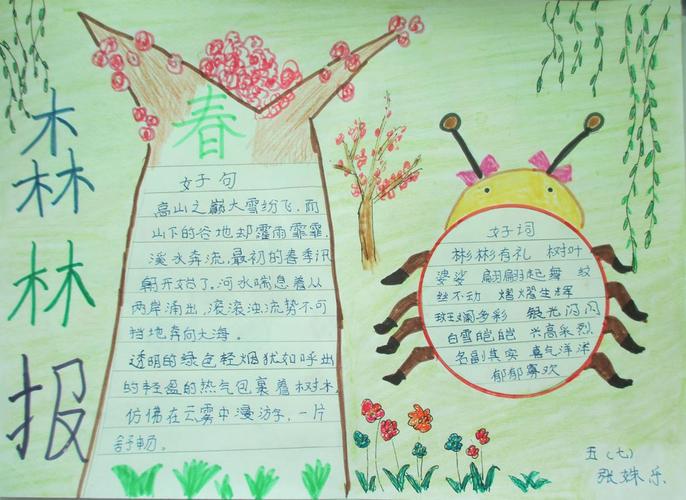 森
林
报
春
好句
高山之巅大雪纷飞,而
山下的谷地却霪雨霏霏.
溪水奔流.最初的春季汛
期开始了.河水喘息着从
两岸涌出,滚滚浊流势不可
挡地奔向大海。
透明的绿色轻烟犹如呼出
的轻盈的热气包裹着树木.
仿佛在云雾中漫游,一片
舒畅。
好词
彬彬有礼 树叶
婆娑 翩翩起舞 纹
丝不动 熠熠生辉
斑斓多彩 银光闪闪
白雪皑皑 兴高采烈
名副其实 喜气洋洋
郁郁寡欢
五(七)
张姝乐